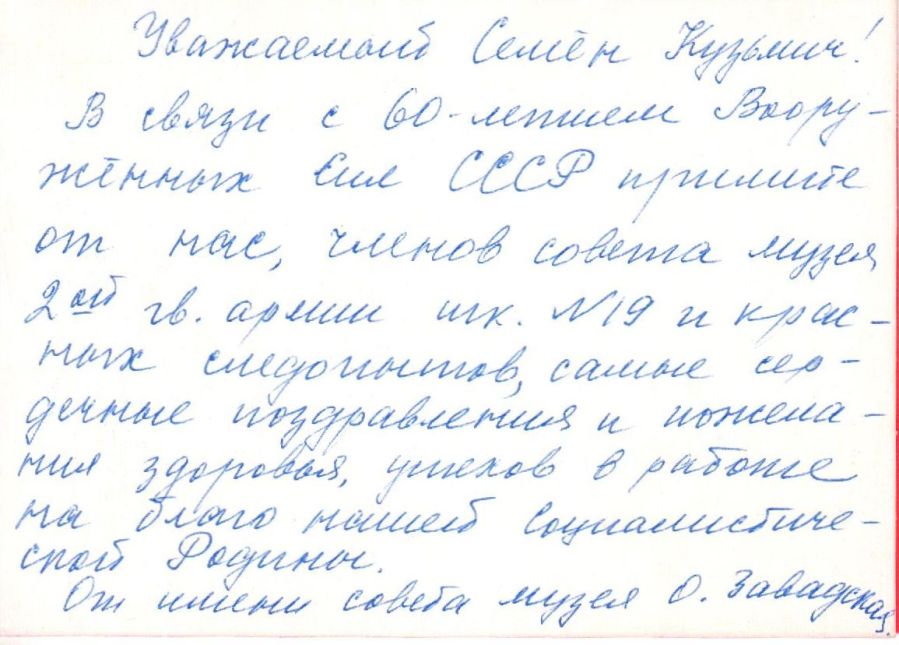 Уважаемый Семён Кузьмич!
В связи с 60-летием Воору-
жённых Сил СССР примите
от нас, членов совета музея
2ой гв. армии шк. №19 и крас-
ных следопытов, самые сер-
дечные поздравления и пожела-
ния здоровья, успехов в работе
на благо нашей Социалистиче-
ской Родины.
От имени совета музея О. Завадская.